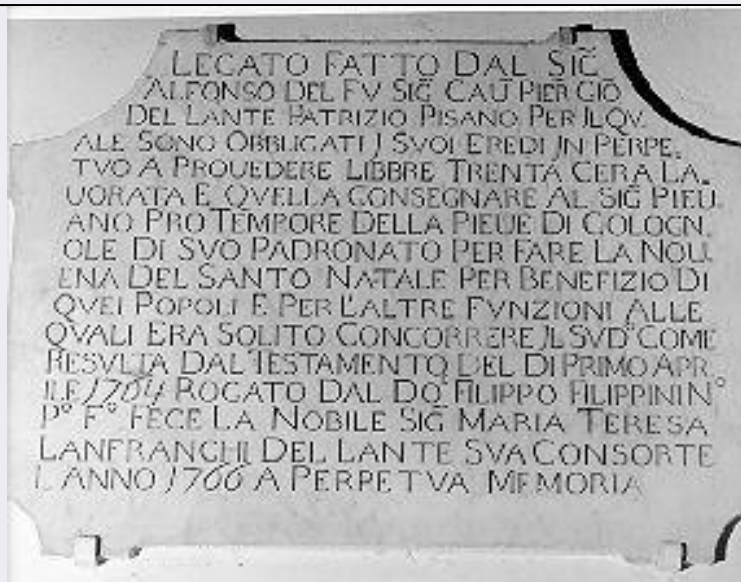 LEGATO FATTO DAL SIG̃
ALFONSO DEL FV SIG̃ CAU PIER GIÕ
DEL LANTE PATRIZIO PISANO PER JL QV.
ALE SONO OBBLIGATI J SVOI EREDI JN PERPE.
TVO A PROUEDERE LIBBRE TRENTA CERA LA.
UORATA E QVELLA CONSEGNARE AL SIG̃ PIEU.
ANO PRO TEMPORE DELLA PIEUE DI GOLOGN.
OLE DI SVO PADRONATO PER FARE LA NOU.
ENA DEL SANTO NATALE PER BENEFIZIO DI
QVEI POPOLI E PER L'ALTRE FVNZIONI ALLE
QVALI ERA SOLITO CONCORRERE JL SVD° COME
RESVLTA DAL TESTAMENTO DEL DI PRIMO APR.
ILE 1764 ROGATO DAL DO^e FILIPPO FILIPPINI N°
P° F° FECE LA NOBILE SIG̃ MARIA TERESA
LANFRANCHI DEL LANTE SVA CONSORTE
L'ANNO 1766 A PERPETVA MEMORIA